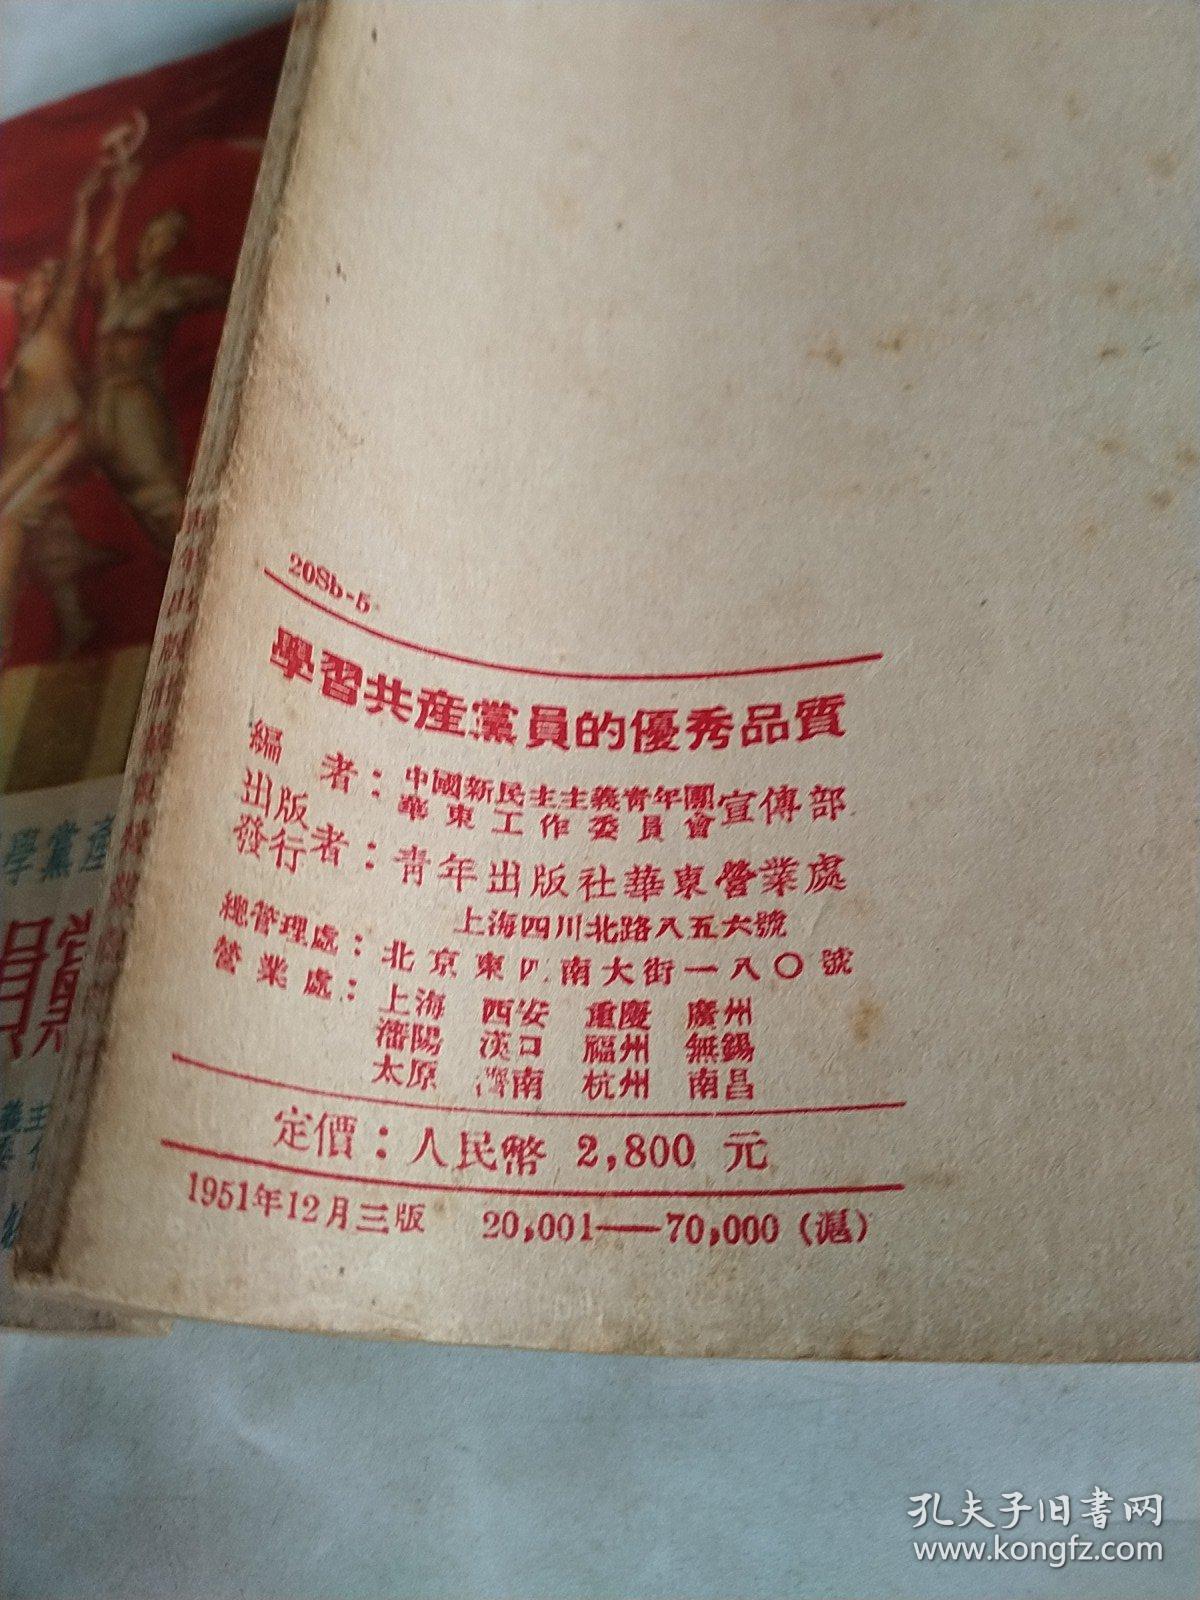 208b-5
學習共產黨員的優秀品質
編者：中國新民主主義青年團華東工作委員會宣傳部
出版發行者：青年出版社華東營業處
上海四川北路八五六號
總管理處：北京東四南大街一八〇號
營業處：上海 西安 重慶 廣州
瀋陽 漢口 福州 無錫
太原 濟南 杭州 南昌
定價：人民幣 2,800 元
1951年12月三版 20,001——70,000（滬）
學黨產
員黨
孔夫子旧书网
www.kongfz.com